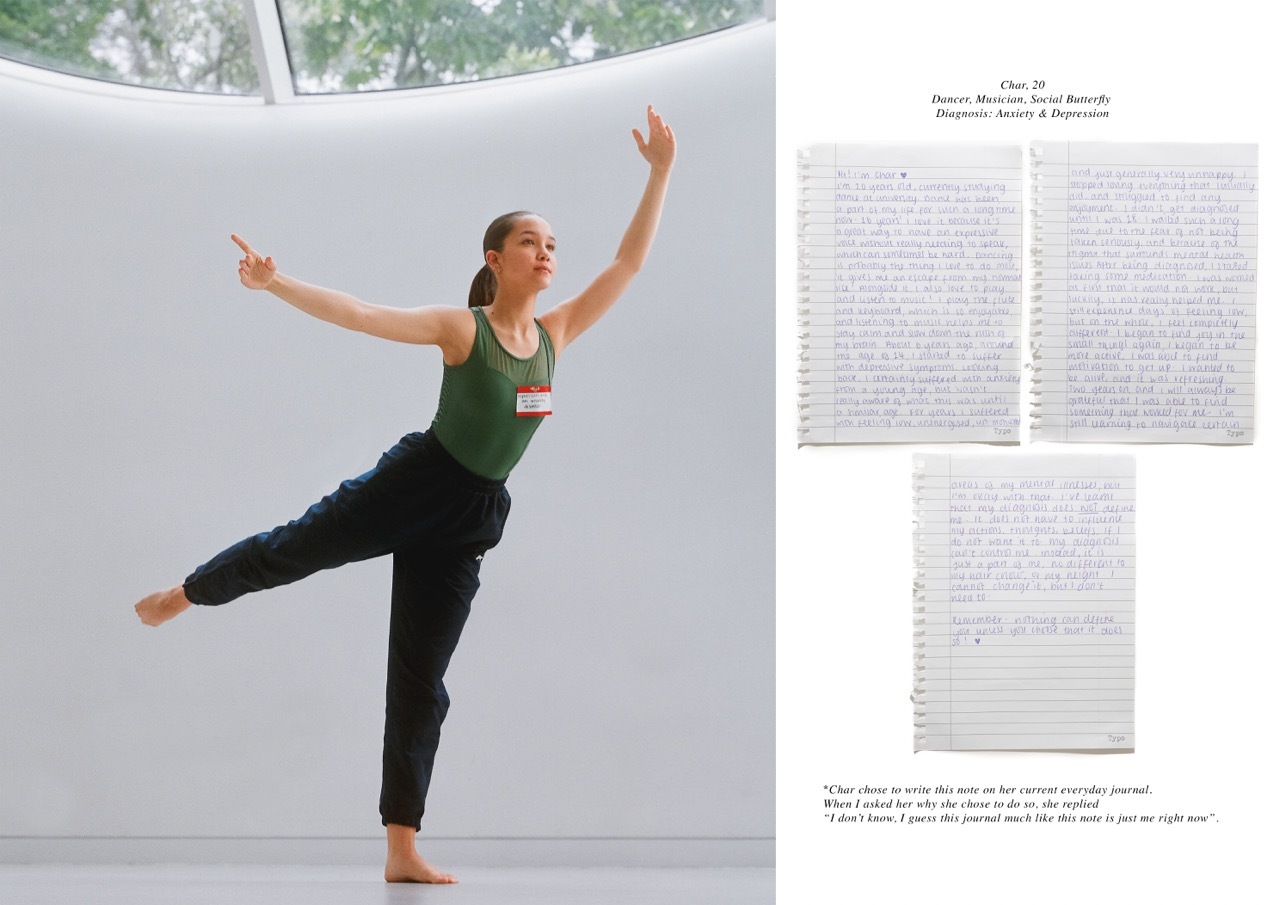 Char, 20
Dancer, Musician, Social Butterfly
Diagnosis: Anxiety & Depression
Hi! I'm Char ♥
I'm 20 years old, currently studying
dance at university. Dance has been
a part of my life for such a long time
now- 16 years! I love it because it's
a great way to have an expressive
voice without really needing to speak,
which can sometimes be hard. Dancing
is probably the thing I love to do most,
it gives me an escape from my normal
life. Alongside it, I also love to play
and listen to music! I play the flute
and keyboard, which is so enjoyable,
and listening to music helps me to
stay calm and slow down the rush of
my brain. About 6 years ago, around
the age of 14, I started to suffer
with depressive symptoms. Looking
back, I certainly suffered with anxiety
from a young age, but wasn't
really aware of what this was until
a similar age. For years I suffered
with feeling low, unenergised, un
Typo
and just generally very unhappy. I
stopped loving everything that I usually
did, and struggled to find any
enjoyment. I didn't get diagnosed
until I was 18. I waited such a long
time due to the fear of not being
taken seriously, and because of the
stigma that surrounds mental health
issues. After being diagnosed, I started
taking some medication. I was worried
at first that it would not work, but
luckily, it has really helped me. I
still experience days of feeling low,
but on the whole, I feel completely
different. I began to find joy in the
small things again, I began to be
more active, I was able to find
motivation to get up. I wanted to
be alive, and it was refreshing.
Two years on, and I will always be
grateful that I was able to find
something that worked for me- I'm
still learning to navigate certain
Typo
areas of my mental illnesses, but
I'm okay with that. I've learnt
that my diagnosis does NOT define
me. It does not have to influence
my actions, thoughts, beliefs, if I
do not want it to. My diagnosis
can't control me. Instead, it is
just a part of me, no different to
my hair colour, or my height. I
cannot change it, but I don't
need to.
Remember- nothing can define
you unless you choose that it does
so! ♥
Typo
*Char chose to write this note on her current everyday journal.
When I asked her why she chose to do so, she replied
“I don't know, I guess this journal much like this note is just me right now”.